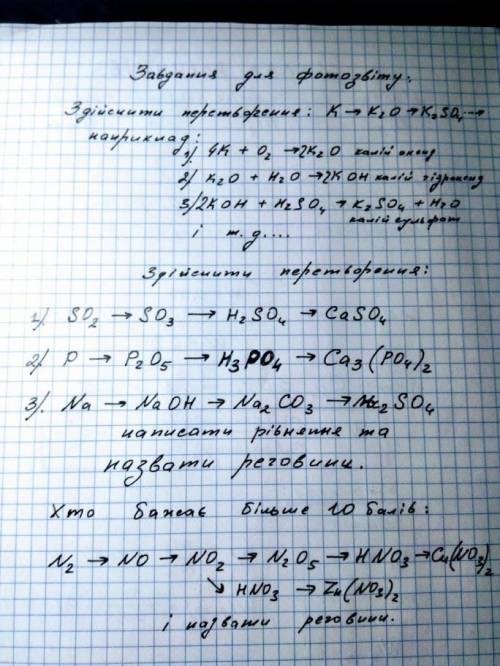 Завдання для фотозвіту.
Здійснити перетворення: K → K₂O → K₂SO₄ ···→
наприклад:
1) 4K + O₂ → 2K₂O калій оксид
2) K₂O + H₂O → 2KOH калій гідроксид
3) 2KOH + H₂SO₄ → K₂SO₄ + H₂O
калій сульфат
і т.д....
Здійснити перетворення:
1) SO₂ → SO₃ → H₂SO₄ → CaSO₄
2) P → P₂O₅ → H₃PO₄ → Ca₃(PO₄)₂
3). Na → NaOH → Na₂CO₃ → Na₂SO₄
написати рівняння та
назвати реговини.
Хто бажає більше 10 балів:
N₂ → NO → NO₂ → N₂O₅ → HNO₃ → Cu(NO₃)₂
↘ HNO₃ → Zn(NO₃)₂
і назвати реговини.